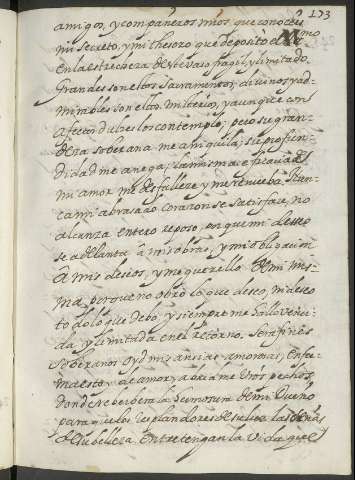 173
amigos, y compañeros mios, que conoceis
mi secreto, y mi thesoro que deposito el Al.mo
en la estrecheza de este vaso fragil, y limitado.
grandes son estos Sacramentos, diuinos y ad-
mirables son estos misterios, y aunque con
afectos dulces los contemplo, pero su gran-
deza soberana me aniquila, su profun-
didad me anega, la misma eficacia de
mi amor me desfallece y me renueba. Nun-
ca mi abrasado corazon se satisface, no
alcanza entero reposo, porque mi deseo
se adelanta á mis obras, y mi obligacion
á mis deseos, y me querello de mi mis-
ma, porque no obro lo que deseo, ni deseo
todo lo que debo y siempre me hallo venci-
da y limitada en el retorno. Serafines
soberanos oyd mis ansias amorosas, Enfer-
ma estoy de amor, abridme vuestros pechos,
donde reberbera la hermosura de mi Dueño
para que los resplandores de su luz, las señas
de su belleza entretengan la vida que